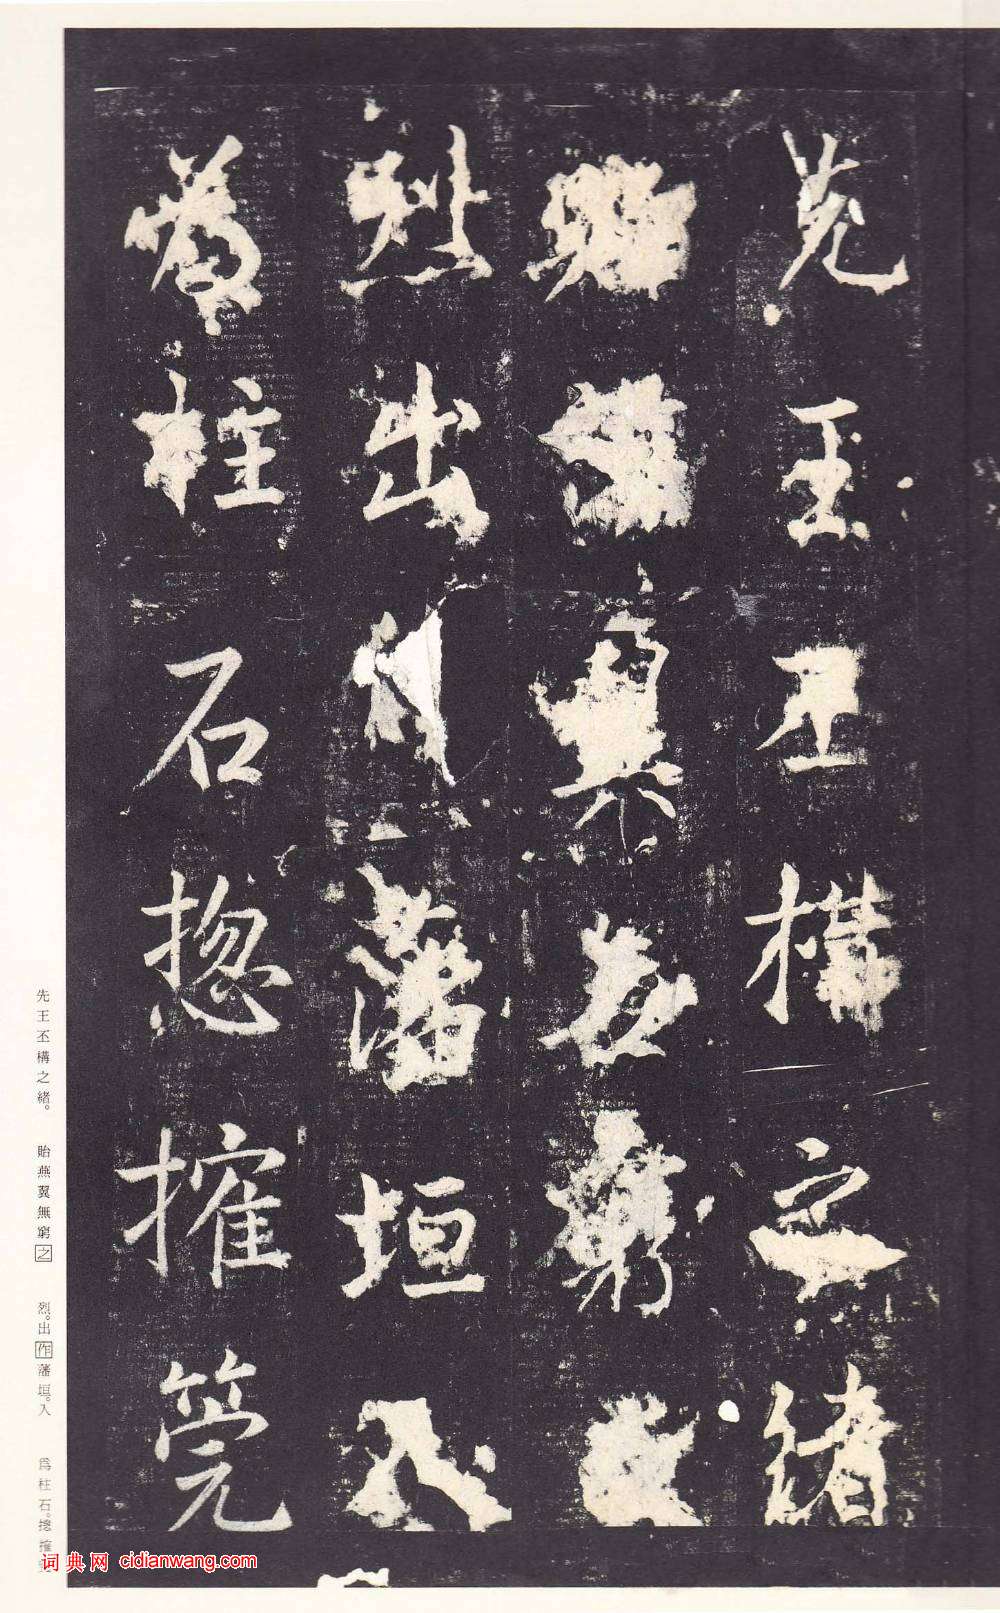 先王丕構之緒
貽燕翼無窮
烈出藩垣入
為柱石揔搉筦
先王丕構之緒。 貽燕翼無窮之 烈。出作藩垣。入 爲柱石。揔搉
词典网 cidianwang.com